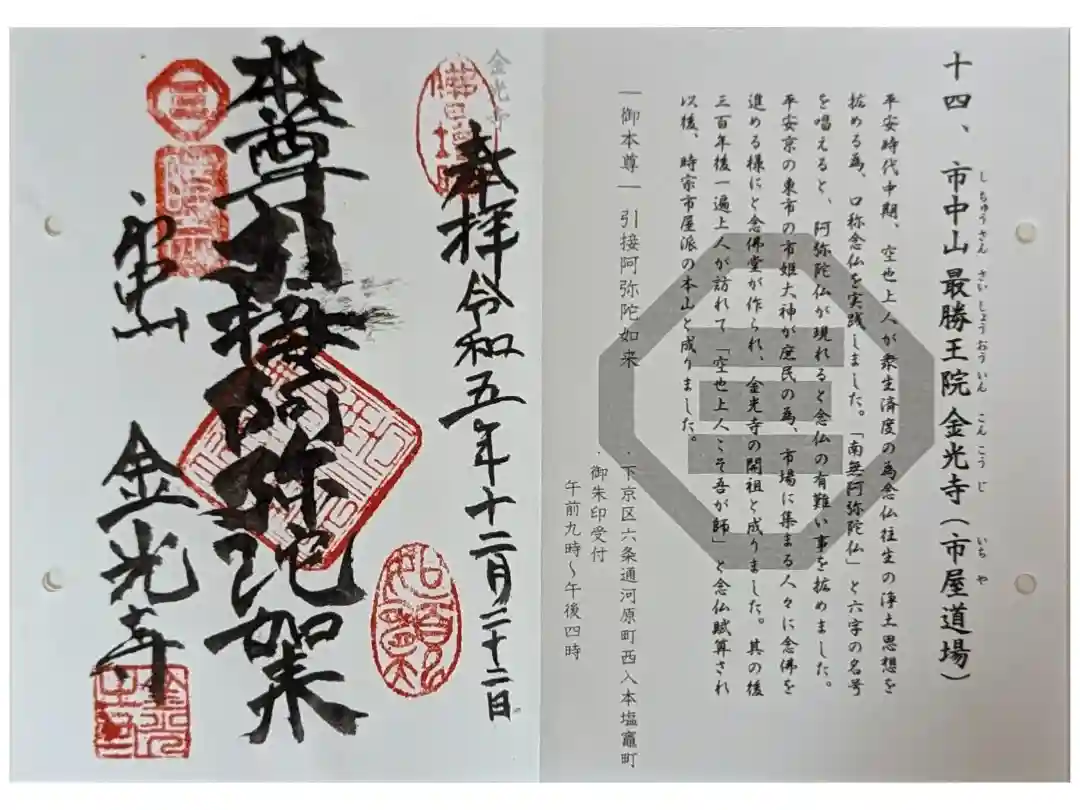 十四、市中山最勝王院金光寺(市屋道場)
しちゅうさん さいしょうおういん こんこうじ いちや
平安時代中期、空也上人が衆生済度の為念仏往生の浄土思想を
拡める為、口称念仏を実践しました。「南無阿弥陀仏」と六字の名号
を唱えると、阿弥陀仏が現れると念仏の有難い事を拡めました。
平安京の東市の市姫大神が庶民の為、市場に集まる人々に念佛を
進める様にと念佛堂が作られ、金光寺の開祖と成りました。其の後
三百年後一遍上人が訪れて「空也上人こそ吾が師」と念仏賦算され
以後、時宗市屋派の本山と成りました。
―御本尊― 引接阿弥陀如来
・下京区六条通河原町西入本塩竈町
・御朱印受付
午前九時~午後四時
金光寺
奉拝 令和五年十二月二十二日
本尊引接阿弥陀如来
金光寺